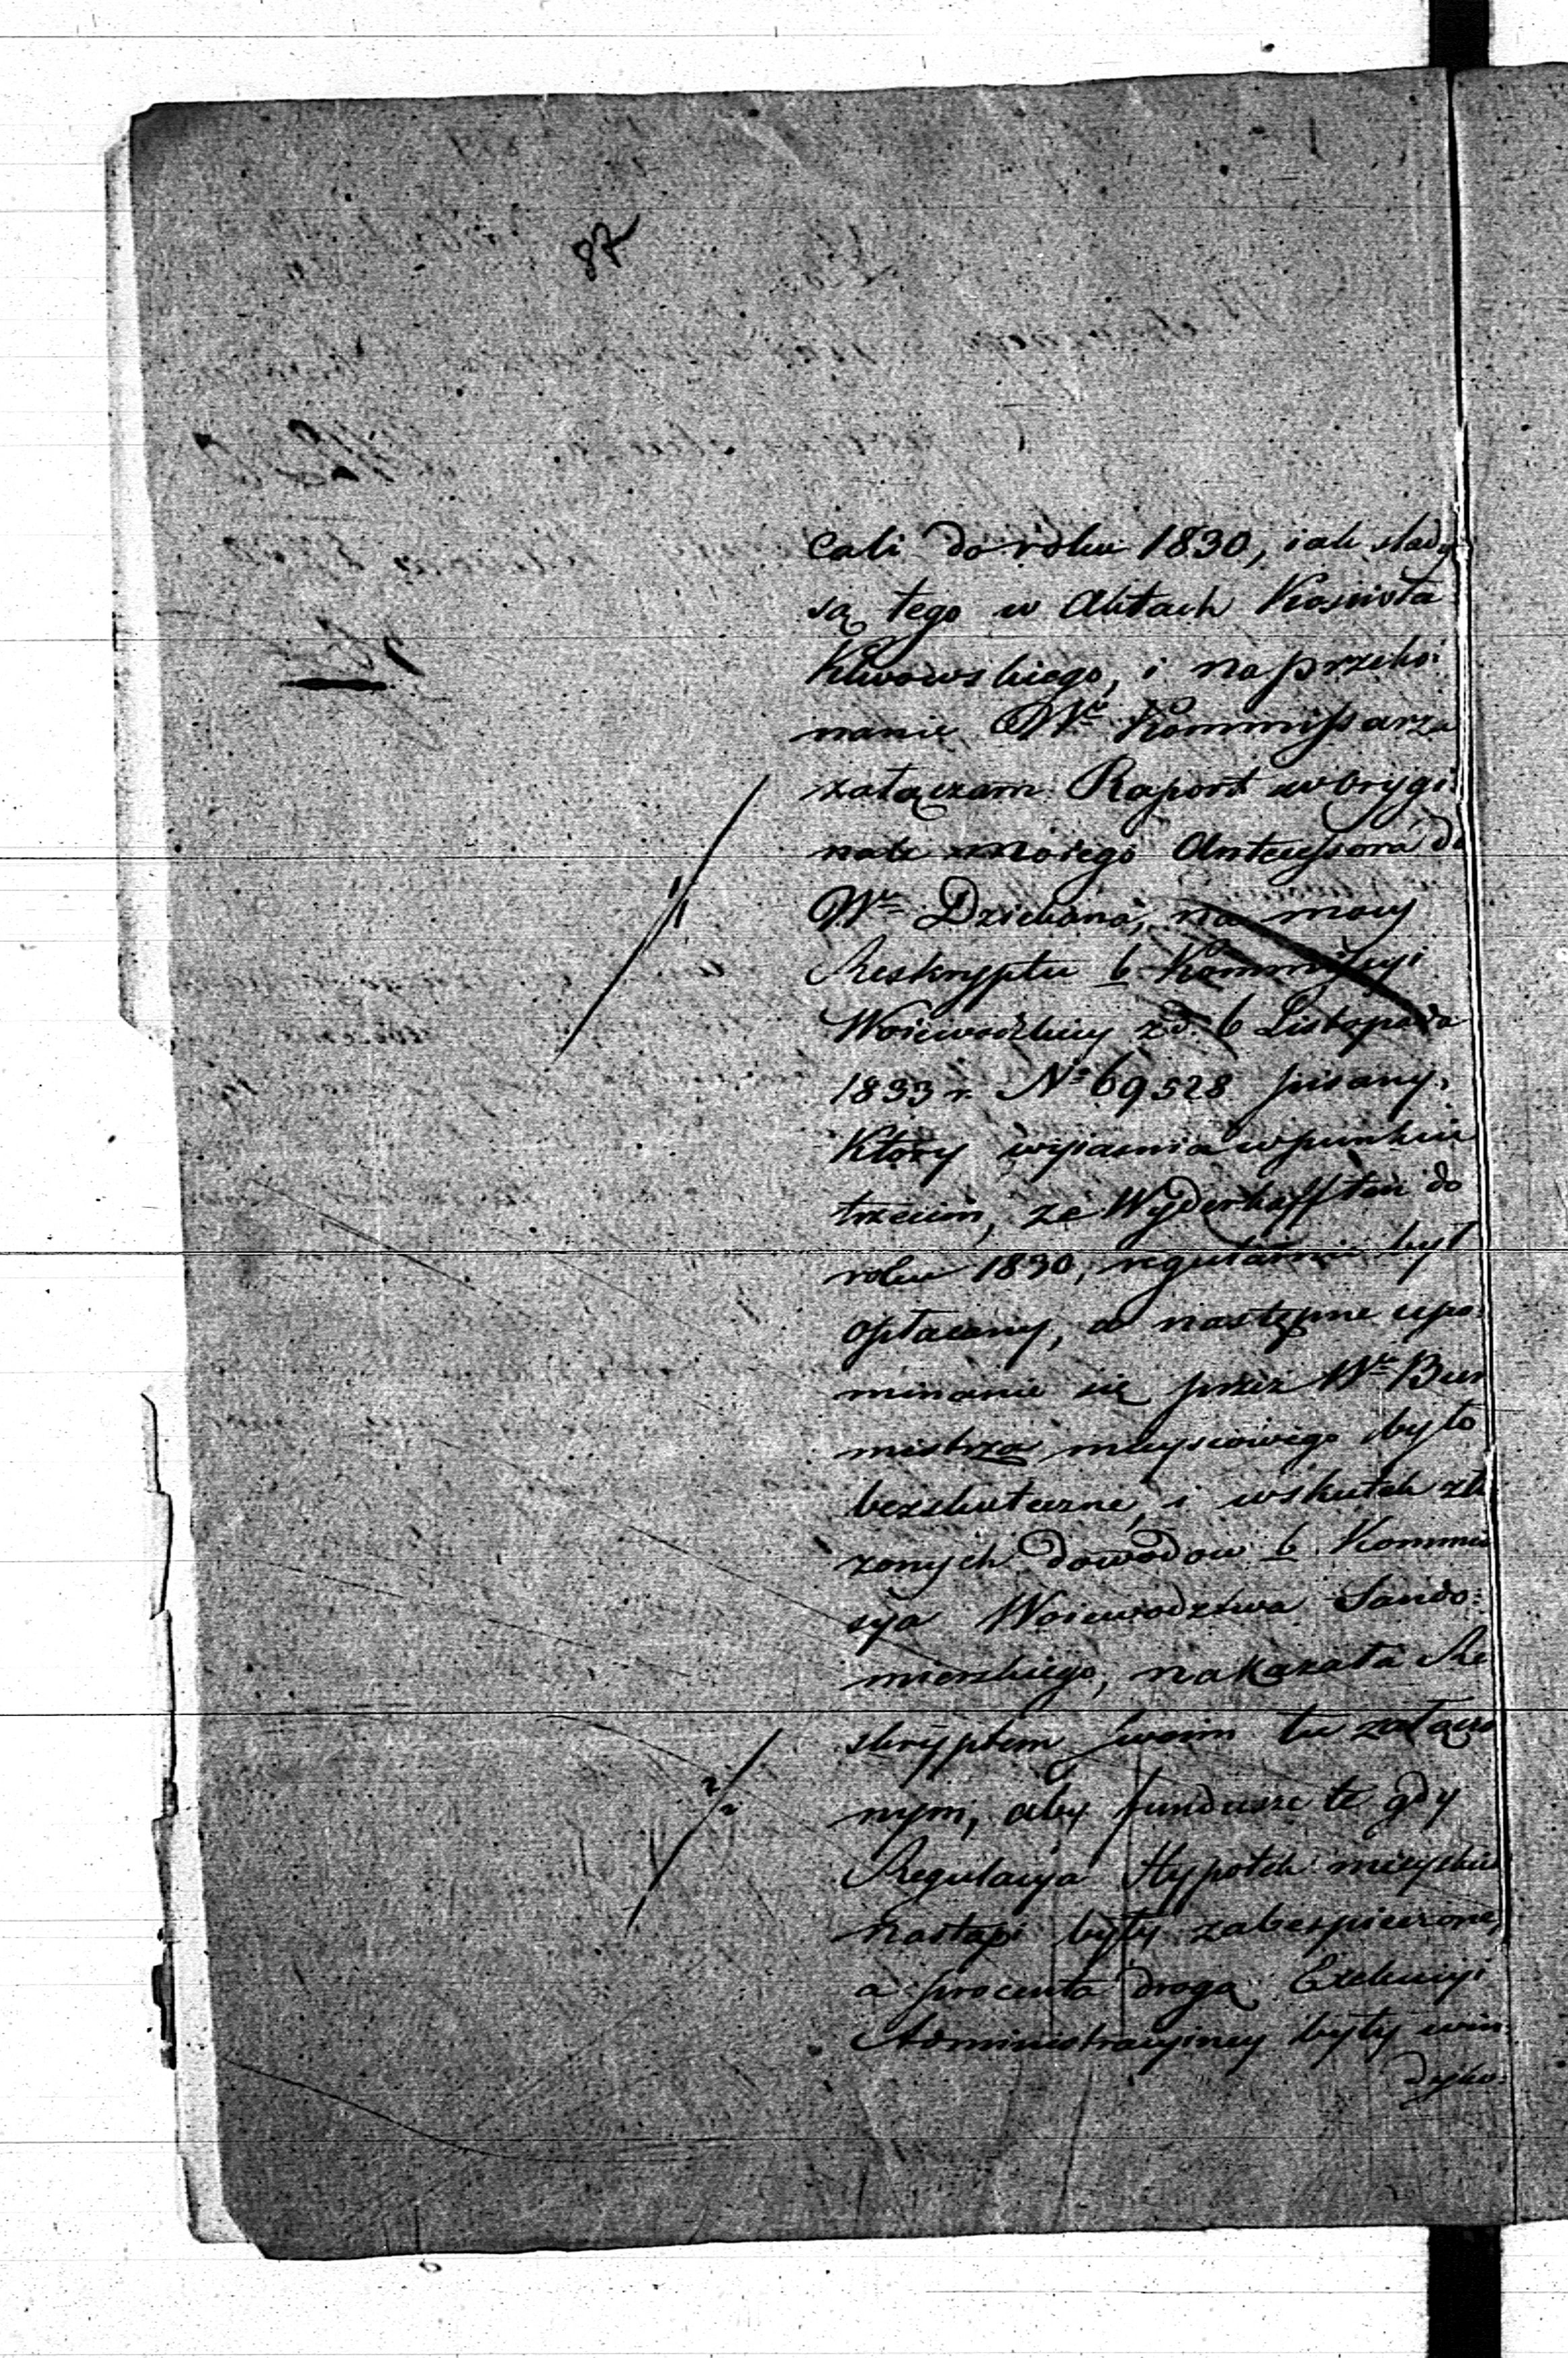 87
cali do roku 1830, iak slady
są tego w Aktach Kościoła
Klwowskiego, i na przeko:
nanie Wo Kommissarza
załączam Raport w orygi:
nale mojego Antecessora do
Wo Dziekana, na mocy
Reskryptu b Kommissyi
Woiewodzkiey z d. 6 Listopada
1833 r. No 69528 pisany,
Który wyiasnia w punkcie
trzecim, że Wyderkaff ten do
roku 1830, regularnie był
opłacany, a następne upo:
minanie się przez Wo Bur
mistrza mieyscowego było
bezskuteczne, i wskutek zło
zonych dowodow b Kommis
sya Woiewodztwa Sando:
mierskiego, nakazała Re
skryptem swoim tu załączo
nym, aby fundusze te gdy
Regulacya Hypotek mieyskich
nastąpi były zabespieczone,
a procenta drogą Exekucyi
Administracyiney były win
dyko:
1/1
2/2